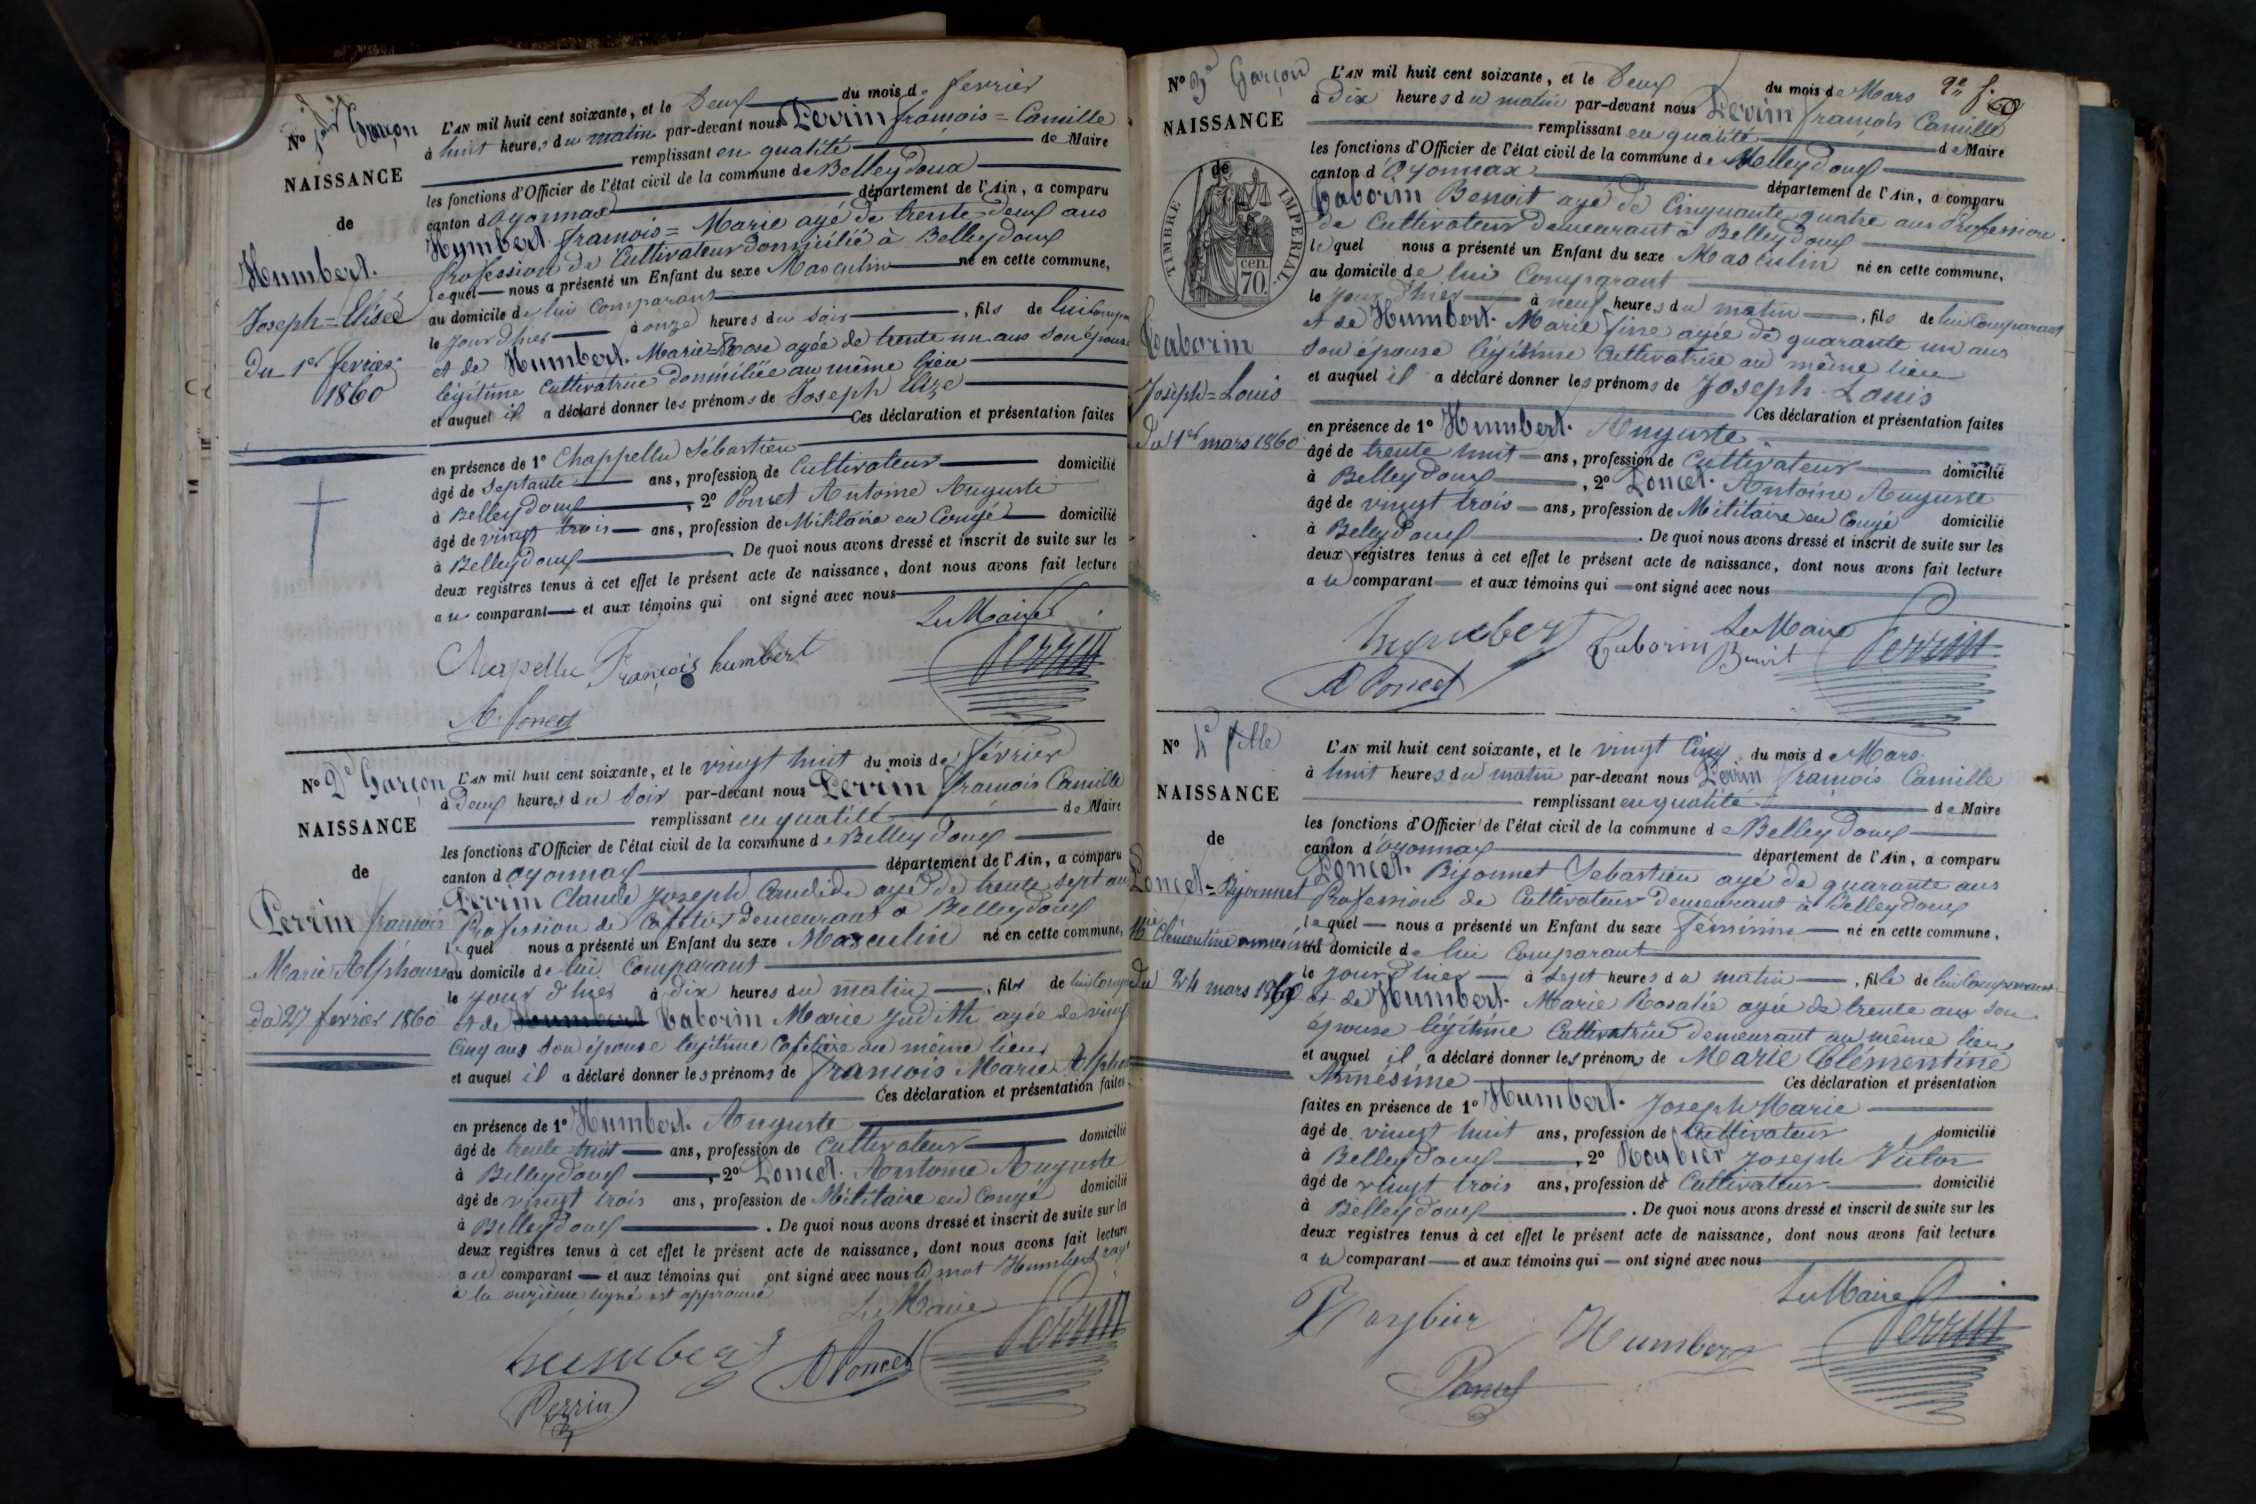 No 1er Garçon
NAISSANCE
de
Humbert.
Joseph=Elisée
du 1er fevrier
1860
L'AN mil huit cent soixante, et le Deux du mois de fevrier
à huit heures du matin par-devant nous Perrin françois=Camille
remplissant en qualité de Maire
les fonctions d'Officier de l'état civil de la commune de Belleydoux
canton d'oyonnax département de l'Ain, a comparu
Humbert. françois=Marie agé de trente=deux ans
Profession de Cultivateur domicilié à Belleydoux
lequel nous a présenté un Enfant du sexe Masculin né en cette commune,
au domicile de lui Comparant
le jour d'hier à onze heures du soir, fils de lui Compa
et de Humbert. Marie=Rose agée de trente un ans son épouse
légitime Cultivatrice domiciliée au même lieu
et auquel il a déclaré donner les prénoms de Joseph Elize
Ces déclaration et présentation faites
en présence de 1° Chappellu Sébastien
âgé de septante ans, profession de Cultivateur domicilié
à Belleydoux, 2° Poncet Antoine Auguste
âgé de vingt trois ans, profession de Militaire en Congé domicilié
à Belleydoux. De quoi nous avons dressé et inscrit de suite sur les
deux registres tenus à cet effet le présent acte de naissance, dont nous avons fait lecture
au comparant et aux témoins qui ont signé avec nous
Le Maire
Chapellu François humbert Perrin
A. Poncet
No 2e Garçon
NAISSANCE
de
Perrin françois
Marie Alphonse
du 27 fevrier 1860
L'AN mil huit cent soixante, et le vingt huit du mois de février
à Deux heures du soir par-devant nous Perrin françois Camille
remplissant en qualité de Maire
les fonctions d'Officier de l'état civil de la commune de Belleydoux
canton d'oyonnax département de l'Ain, a comparu
Perrin Claude Joseph Candide agé de trente sept ans
Profession de Cafetier demeurant à Belleydoux
lequel nous a présenté un Enfant du sexe Masculin né en cette commune,
au domicile de lui Comparant
le jour d'hier à dix heures du matin, fils de lui Comp
et de Humbert Taborin Marie Judith agée de vingt
Cinq ans son épouse légitime Cafetière au même lieu
et auquel il a déclaré donner les prénoms de françois Marie Alphon
Ces déclaration et présentation faites
en présence de 1° Humbert. Auguste
âgé de trente huit ans, profession de Cultivateur domicilié
à Belleydoux, 2° Poncet. Antoine Auguste
âgé de vingt trois ans, profession de Militaire en Congé domicilié
à Belleydoux. De quoi nous avons dressé et inscrit de suite sur les
deux registres tenus à cet effet le présent acte de naissance, dont nous avons fait lecture
au comparant et aux témoins qui ont signé avec nous le mot Humbert rayé
à la onzième ligne est approuvé
Le Maire
humbert A Poncet Perrin
Perrin
9e f.
No 3e Garçon
NAISSANCE
de
TIMBRE IMPERIAL.
70 cen
Taborin
Joseph=Louis
du 1er mars 1860
L'AN mil huit cent soixante, et le Deux du mois de Mars
à dix heures du matin par-devant nous Perrin françois Camille
remplissant en qualité de Maire
les fonctions d'Officier de l'état civil de la commune de Belleydoux
canton d'Oyonnax département de l'Ain, a comparu
Taborin Benoit agé de Cinquante quatre ans Profession
de Cultivateur demeurant à Belleydoux
lequel nous a présenté un Enfant du sexe Masculin né en cette commune,
au domicile de lui Comparant
le jour d'hier à neuf heures du matin, fils de lui Comparant
et de Humbert. Marie agée de quarante un ans
son épouse légitime Cultivatrice au même lieu
et auquel il a déclaré donner les prénoms de Joseph Louis
Ces déclaration et présentation faites
en présence de 1° Humbert. Auguste
âgé de trente huit ans, profession de Cultivateur domicilié
à Belleydoux, 2° Poncet. Antoine Auguste
âgé de vingt trois ans, profession de Militaire en Congé domicilié
à Belleydoux. De quoi nous avons dressé et inscrit de suite sur les
deux registres tenus à cet effet le présent acte de naissance, dont nous avons fait lecture
au comparant et aux témoins qui ont signé avec nous
Le Maire
humbert Taborin Benoit Perrin
A Poncet
No 4e fille
NAISSANCE
de
Poncet=Bijonnet
Mie Clémentine
du 24 mars 1860
L'AN mil huit cent soixante, et le vingt Cinq du mois de Mars
à huit heures du matin par-devant nous Perrin françois Camille
remplissant en qualité de Maire
les fonctions d'Officier de l'état civil de la commune de Belleydoux
canton d'oyonnax département de l'Ain, a comparu
Poncet. Bijonnet Sebastien agé de quarante ans
Profession de Cultivateur demeurant à Belleydoux
lequel nous a présenté un Enfant du sexe féminin né en cette commune,
au domicile de lui Comparant
le jour d'hier à sept heures du matin, fille de lui Comparant
et de Humbert. Marie Rosalie agée de trente ans son
épouse légitime Cultivatrice demeurant au même lieu
et auquel il a déclaré donner les prénoms de Marie Clémentine
Ces déclaration et présentation
faites en présence de 1° Humbert. Joseph Marie
âgé de vingt huit ans, profession de Cultivateur domicilié
à Belleydoux, 2° Roybier Joseph Victor
âgé de vingt trois ans, profession de Cultivateur domicilié
à Belleydoux. De quoi nous avons dressé et inscrit de suite sur les
deux registres tenus à cet effet le présent acte de naissance, dont nous avons fait lecture
au comparant et aux témoins qui ont signé avec nous
Le Maire
Roybier Humbert Perrin
Poncet